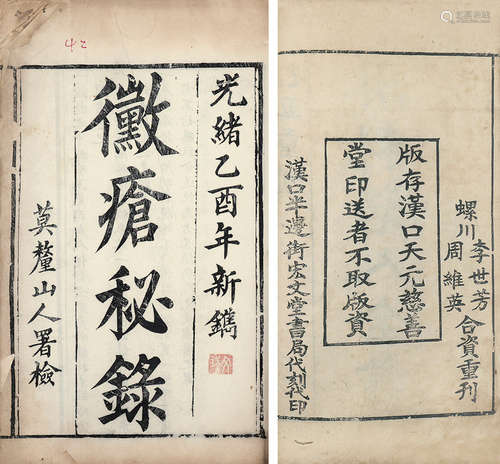 42
光緒乙酉年新鐫
黴瘡秘錄
莫釐山人署檢
螺川李世芳周維英合資重刊
版存漢口天元慈善
堂印送者不取版資
漢口半邊街宋文堂書局代刻代印